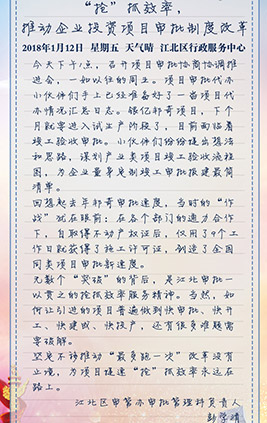 "抢"抓效率,
推动企业投资项目审批制度改革
2018年1月12日 星期五 天气晴 江北区行政服务中心
今天下午1点,召开项目审批协商协调推
进会,一如以往的周五。项目审批代办
小伙伴们早上已经准备好了一周项目代
办情况汇总日志。银亿邦奇项目,下个
月就要进入试生产阶段了,目前面临着
竣工验收审批。小伙伴们纷纷提出想法
和思路,谋划产业类项目竣工验收流程
图,为企业量身定制竣工审批报建最简
清单。
回想起去年邦奇审批提速,当时的"作
战"犹在眼前:在各个部门的通力合作
下,自取得不动产权证后,仅用了9个工
作日就获得了施工许可证,创造了全国
同类项目审批新速度。
无数个"突破"的背后,是江北审批一
以贯之的抢抓效率服务精神。当然,如
何让引进的项目普遍做到快审批、快开
工、快建成、快投产,还有很多难题需
要破解。
坚定不移推动"最多跑一次"改革没有
止境,为项目提速"抢"抓效率永远在
路上。
江北区审管办审批管理科负责人